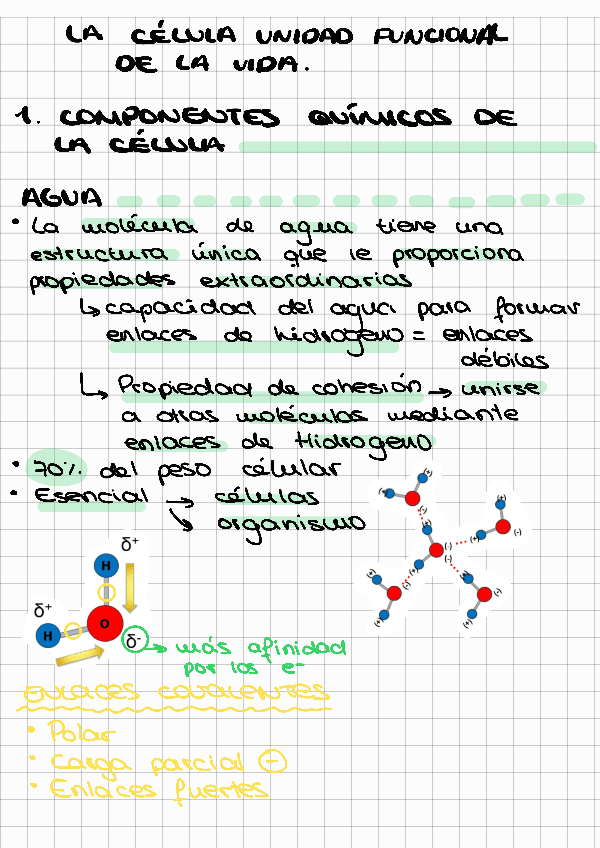 LA CÉLULA UNIDAD FUNCIONAL
DE LA VIDA.
1. COMPONENTES QUÍMICOS DE
LA CÉLULA
AGUA
• La molécula de agua tiene una
estructura única que le proporciona
propiedades extraordinarias
↳ capacidad del agua para formar
enlaces de hidrogeno = enlaces
débiles
↳ Propiedad de cohesión → unirse
a otras moléculas mediante
enlaces de Hidrogeno
• 70% del peso célular
• Esencial → células
↘ organismo
δ+
H
δ+
H
O
δ-
→ más afinidad
por los e-
(+)
(+)
(-)
(+)
(-)
(-)
(+)
(+)
(-)
(+)
(-)
(+)
(+)
(-)
(+)
(+)
(-)
ENLACES COVALENTES
• Polar
• Carga parcial ⊖
• Enlaces fuertes